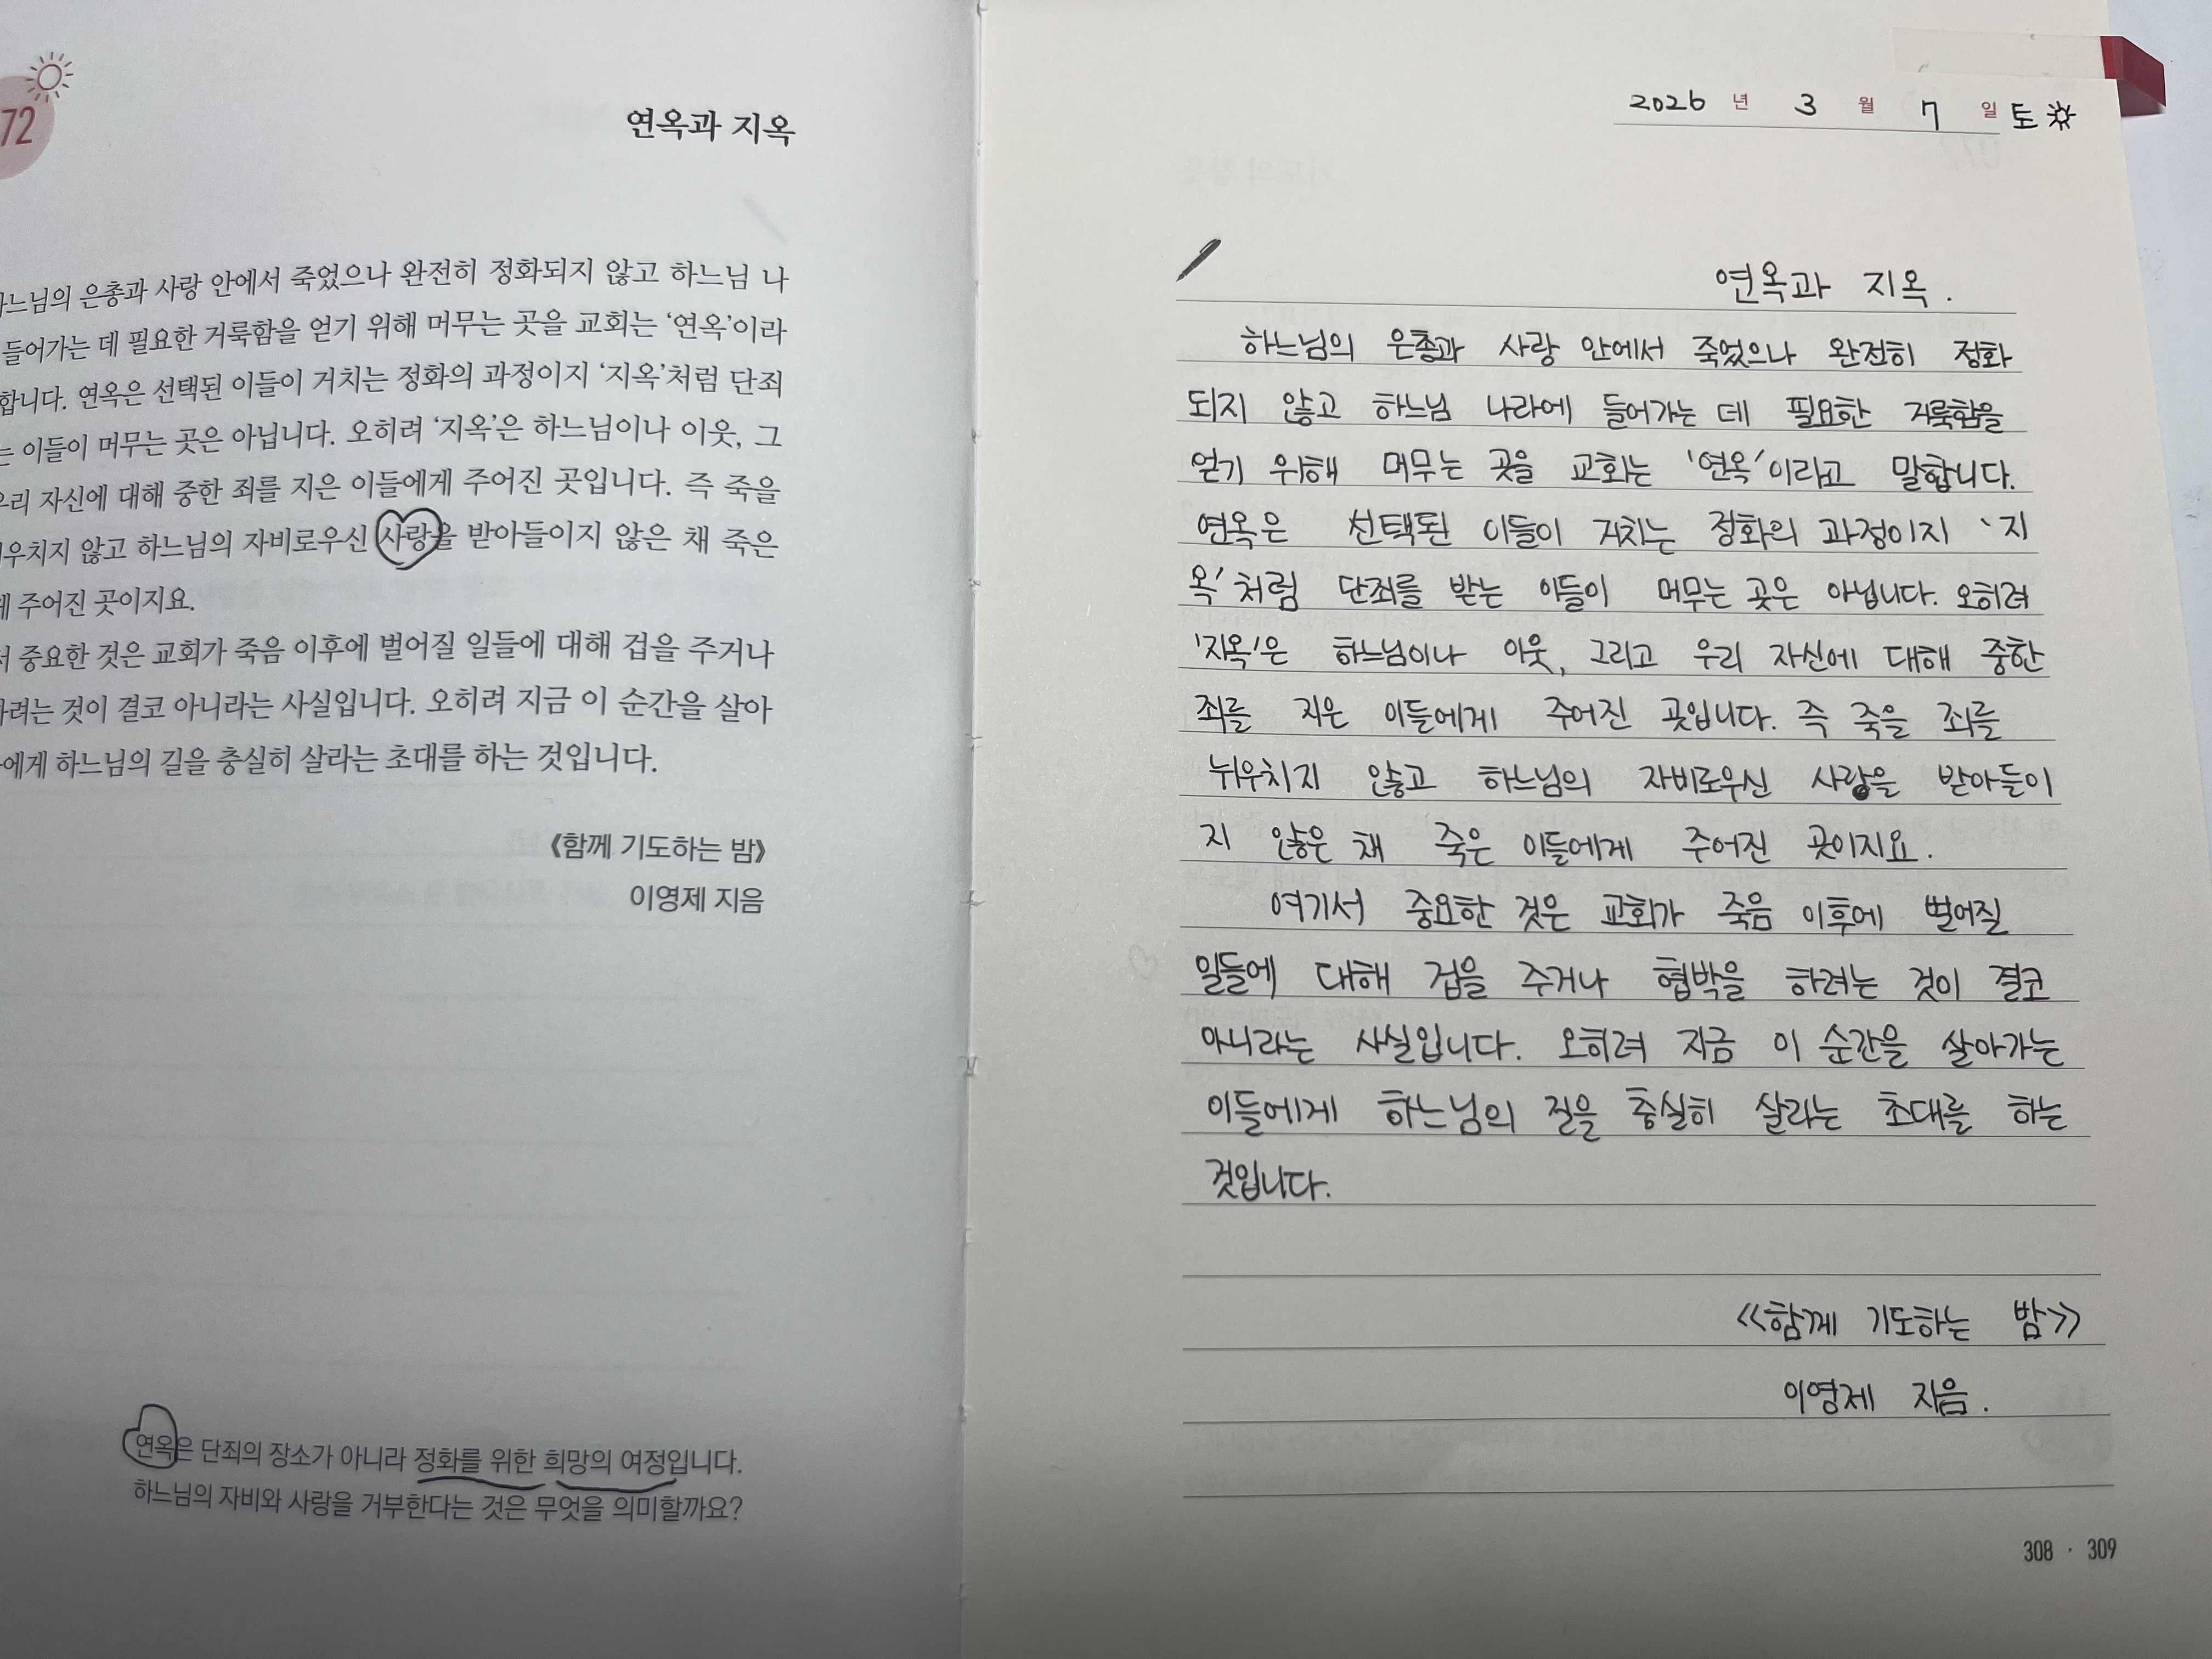 72
연옥과 지옥
하느님의 은총과 사랑 안에서 죽었으나 완전히 정화되지 않고 하느님 나
들어가는 데 필요한 거룩함을 얻기 위해 머무는 곳을 교회는 ‘연옥’이라
합니다. 연옥은 선택된 이들이 거치는 정화의 과정이지 ‘지옥’처럼 단죄
는 이들이 머무는 곳은 아닙니다. 오히려 ‘지옥’은 하느님이나 이웃, 그
우리 자신에 대해 중한 죄를 지은 이들에게 주어진 곳입니다. 즉 죽을
우치지 않고 하느님의 자비로우신 사랑을 받아들이지 않은 채 죽은
게 주어진 곳이지요.
서 중요한 것은 교회가 죽음 이후에 벌어질 일들에 대해 겁을 주거나
하려는 것이 결코 아니라는 사실입니다. 오히려 지금 이 순간을 살아
에게 하느님의 길을 충실히 살라는 초대를 하는 것입니다.
《함께 기도하는 밤》
이영제 지음
연옥은 단죄의 장소가 아니라 정화를 위한 희망의 여정입니다.
하느님의 자비와 사랑을 거부한다는 것은 무엇을 의미할까요?
2026 년 3 월 7 일 토
연옥과 지옥.
하느님의 은총과 사랑 안에서 죽었으나 완전히 정화
되지 않고 하느님 나라에 들어가는 데 필요한 거룩함을
얻기 위해 머무는 곳을 교회는 '연옥'이라고 말합니다.
연옥은 선택된 이들이 거치는 정화의 과정이지 '지
옥'처럼 단죄를 받는 이들이 머무는 곳은 아닙니다. 오히려
'지옥'은 하느님이나 이웃, 그리고 우리 자신에 대해 중한
죄를 지은 이들에게 주어진 곳입니다. 즉 죽을 죄를
뉘우치지 않고 하느님의 자비로우신 사랑을 받아들이
지 않은 채 죽은 이들에게 주어진 곳이지요.
여기서 중요한 것은 교회가 죽음 이후에 벌어질
일들에 대해 겁을 주거나 협박을 하려는 것이 결코
아니라는 사실입니다. 오히려 지금 이 순간을 살아가는
이들에게 하느님의 길을 충실히 살라는 초대를 하는
것입니다.
<<함께 기도하는 밤>>
이영제 지음.
308 · 309